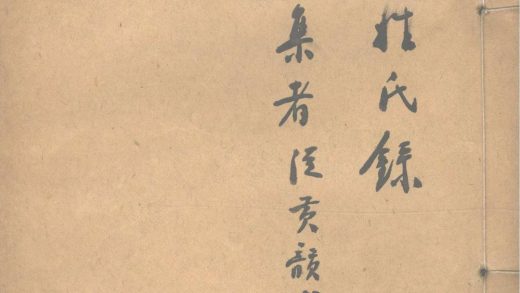 姓氏錄
集者汪黄韻